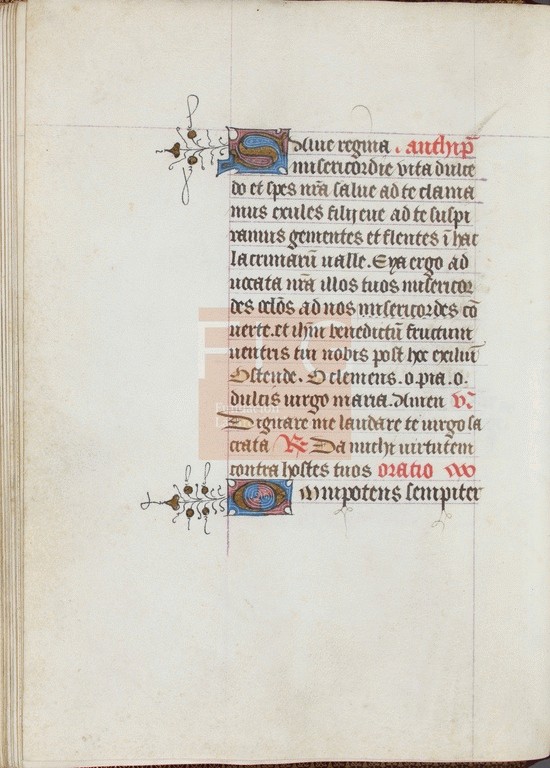 Salue regina . anthip̄
misericordie vita dulce
do et spes nr̄a salue ad te clama
mus exules filij eue ad te suspi
ramus gementes et flentes ī hac
lacrimarū ualle. Eya ergo ad
uocata nr̄a illos tuos misericor
des oclōs ad nos misericordes cō
uerte. et ih̄m benedictū fructum
uentris tui nobis post hoc exiliuī
Ostende. O clemens. o. pia. o.
dulcis uirgo maria. Amen V̄
Dignare me laudare te uirgo sa
crata R̄ Da michi uirtutem
contra hostes tuos oratio
Omnipotens sempiter